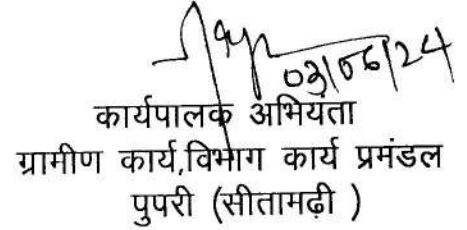 03/06/24
कार्यपालक अभियंता
ग्रामीण कार्य,विभाग कार्य प्रमंडल
पुपरी (सीतामढ़ी )